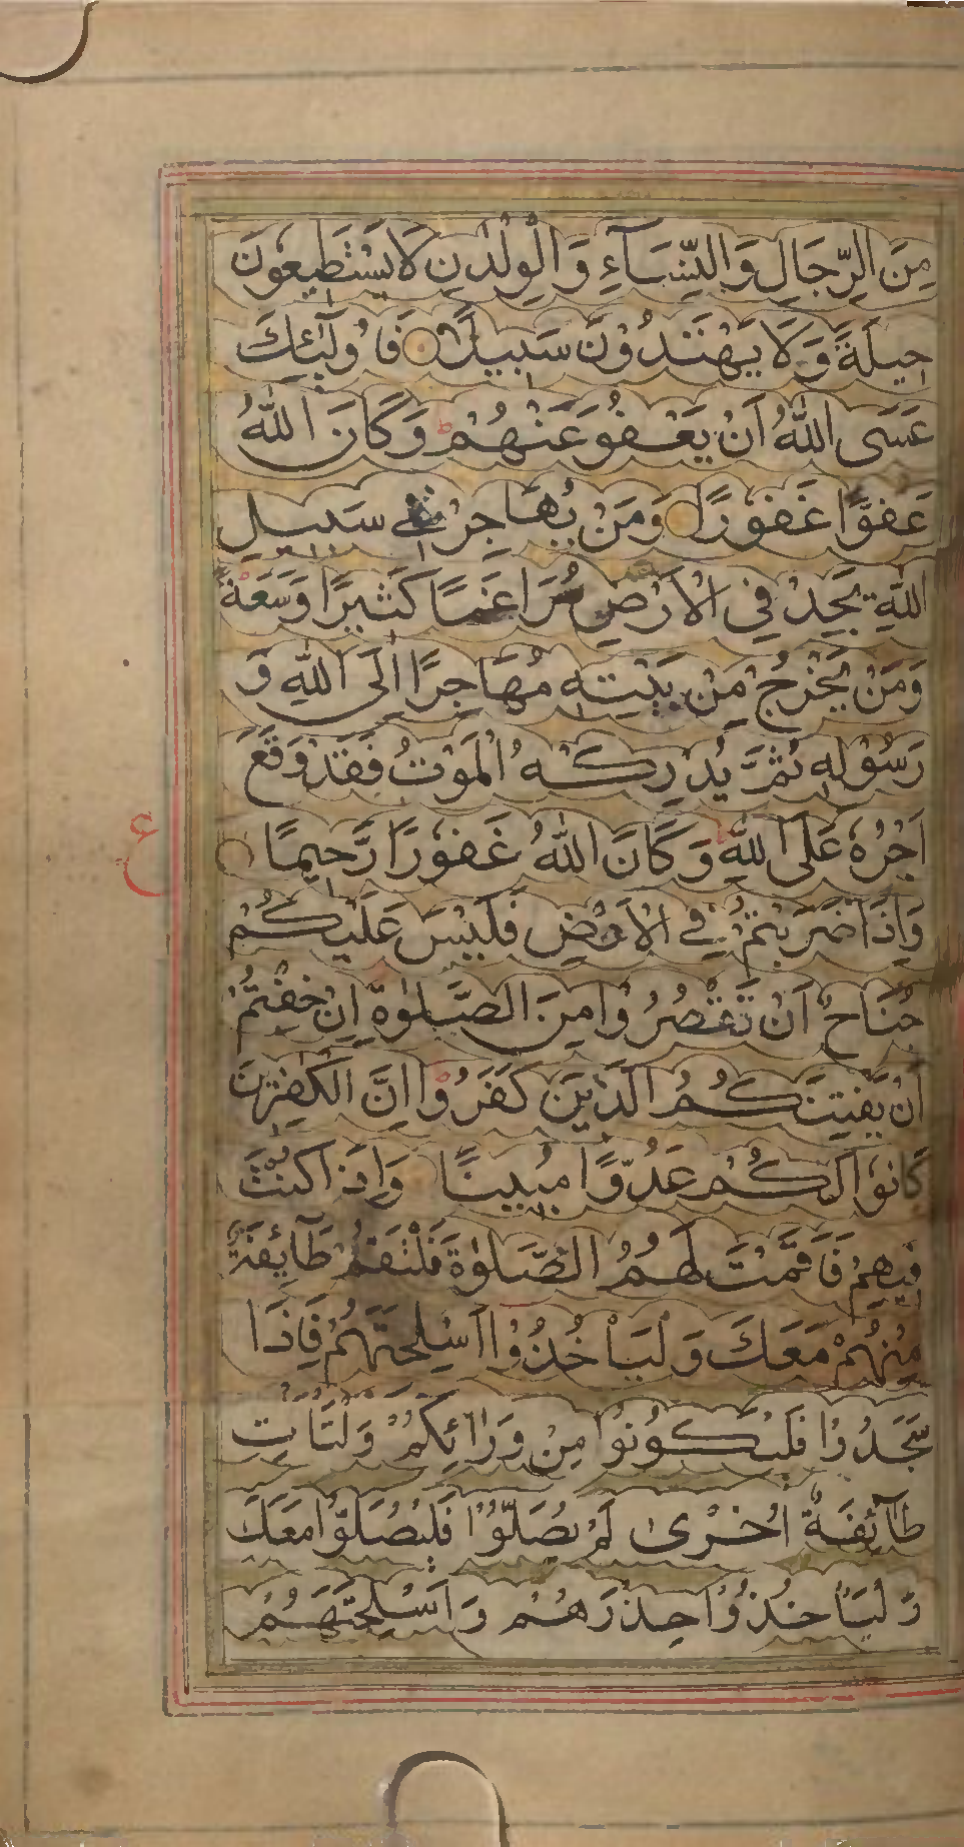 مِنَ الرِّجَالِ وَالنِّسَآءِ وَالْوِلْدٰنِ لَا يَسْتَطِيعُونَ
حِيلَةً وَّلَا يَهْتَدُوْنَ سَبِيلًا فَاُولٰٓئِكَ
عَسَى اللّٰهُ اَنْ يَّعْفُوَ عَنْهُمْ ط وَكَانَ اللّٰهُ
عَفُوًّا غَفُورًا وَمَنْ يُّهَاجِرْ فِي سَبِيلِ
اللّٰهِ يَجِدْ فِي الْاَرْضِ مُرَاغَمًا كَثِيرًا وَّسَعَةً ط
وَمَنْ يَّخْرُجْ مِنْ بَيْتِهٖ مُهَاجِرًا اِلَى اللّٰهِ وَ
رَسُوْلِهٖ ثُمَّ يُدْرِكْهُ الْمَوْتُ فَقَدْ وَقَعَ
اَجْرُهٗ عَلَى اللّٰهِ ط وَكَانَ اللّٰهُ غَفُورًا رَّحِيمًا
ع
وَاِذَا ضَرَبْتُمْ فِي الْاَرْضِ فَلَيْسَ عَلَيْكُمْ
جُنَاحٌ اَنْ تَقْصُرُوْا مِنَ الصَّلٰوةِ اِنْ خِفْتُمْ
اَنْ يَّفْتِنَكُمُ الَّذِيْنَ كَفَرُوْا ط اِنَّ الْكٰفِرِيْنَ
كَانُوْا لَكُمْ عَدُوًّا مُّبِينًا وَاِذَا كُنْتَ
فِيهِمْ فَاَقَمْتَ لَهُمُ الصَّلٰوةَ فَلْتَقُمْ طَآئِفَةٌ
مِّنْهُمْ مَّعَكَ وَلْيَاْخُذُوْا اَسْلِحَتَهُمْ فَاِذَا
سَجَدُوْا فَلْيَكُوْنُوْا مِنْ وَّرَآئِكُمْ وَلْتَاْتِ
طَآئِفَةٌ اُخْرٰى لَمْ يُصَلُّوْا فَلْيُصَلُّوْا مَعَكَ
وَلْيَاْخُذُوْا حِذْرَهُمْ وَاَسْلِحَتَهُمْ